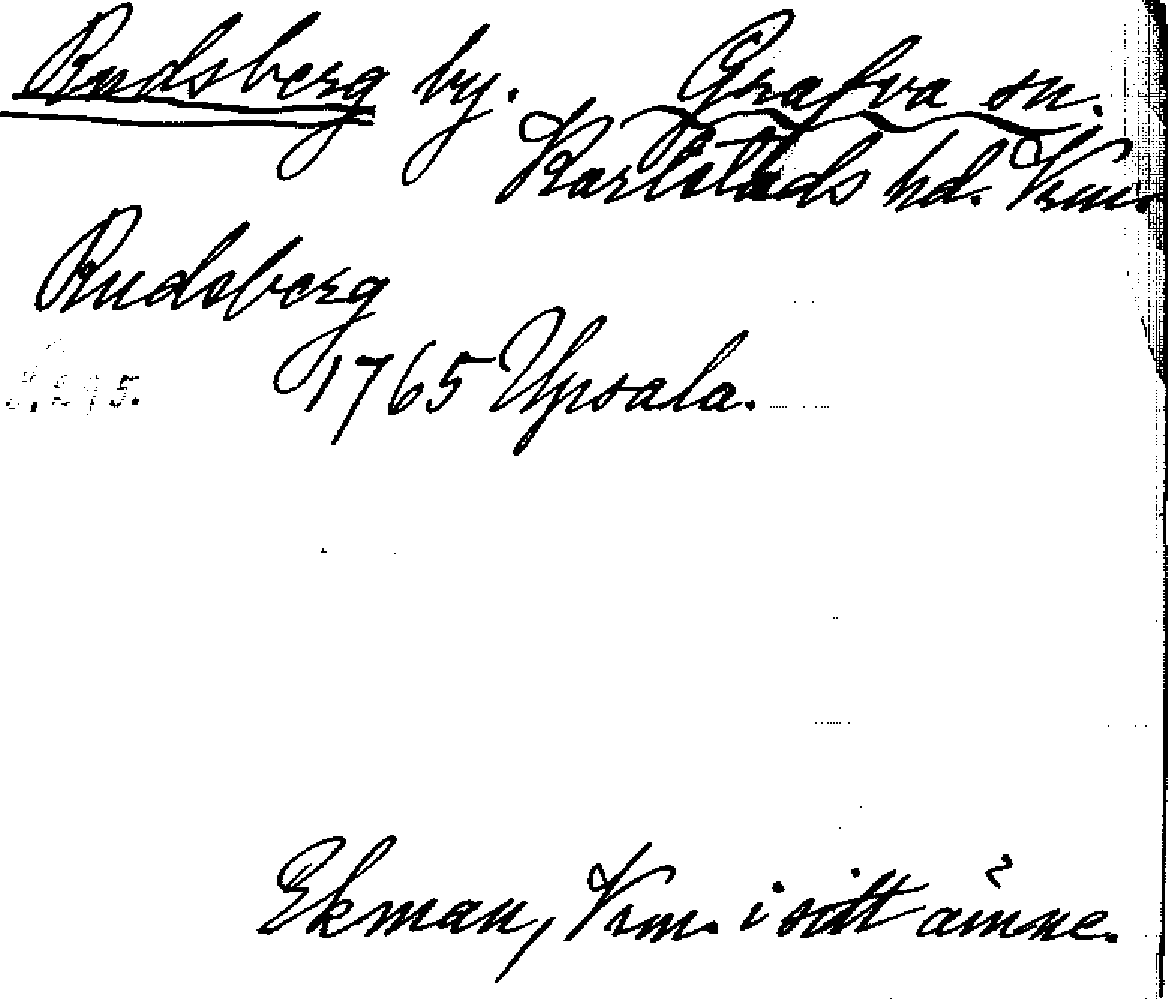 Rudsberg by. Grafva sn.
Karlstads hd. Vrm.
Rudsberg
1765 Upsala.
Ekman, Vrm. i sitt ämne.